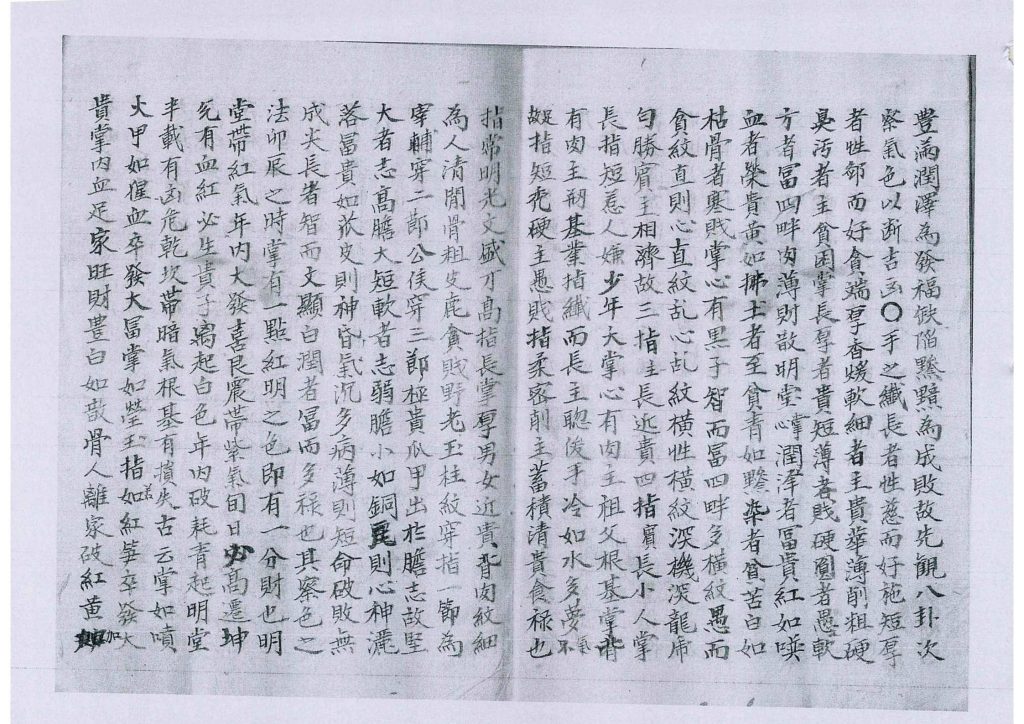 豊滿潤澤為發福低陷黲黯為成敗故先観八卦次
察氣色以断吉凶〇手之纖長者性慈而好施短厚
者性鄙而好貪端厚香煖軟細者主貴華薄削粗硬
臭污者主貧困掌長厚者貴短薄者賤硬圓者愚軟
方者冨四畔肉薄則散明堂潤澤者冨貴紅如噀
血者榮貴黄如拂土者至貧青如黲染者貧苦白如
枯骨者寒賎掌心有黒子智而冨四畔多横紋愚而
貪紋直則心直紋乱心乱紋横性横紋深機深龍虎
匀勝賓主相濟故三指主長近貴四指賓長小人掌
長指短惹人嫌少年大掌心有肉主祖父根基掌背
有肉主刱基業指纖而長主聰俊手冷如水多夢
指短秃硬主愚賎指柔密削主蓄積清貴食禄也
指常明光文盛才高指長掌厚男女近貴背肉紋細
為人清閒骨粗皮鹿貪賎野老玉柱紋穿指一節為
宰輔穿二節公侯穿三節極貴瓜甲出於膽志故堅
大者志高膽大短軟者志弱膽小如銅則心神灑
落冨貴如皮則神昏氣沉多病薄則短命破敗無
成尖長者智而文顯白潤者冨而多禄也其察色之
法卯辰之時掌有一點紅明之色即有一分財也明
堂帶紅氣年内大發喜艮震帶紫氣旬日必高遷坤
兌有血紅必生貴子离起白色年内破耗青起明堂
半載有凶危乾坎帶暗氣根基有損失古云掌如噴
火甲如猩血卒發大冨掌如瑩玉指如紅笋卒發大
貴掌内血足家旺財豊白如敲骨人離家破紅黄如